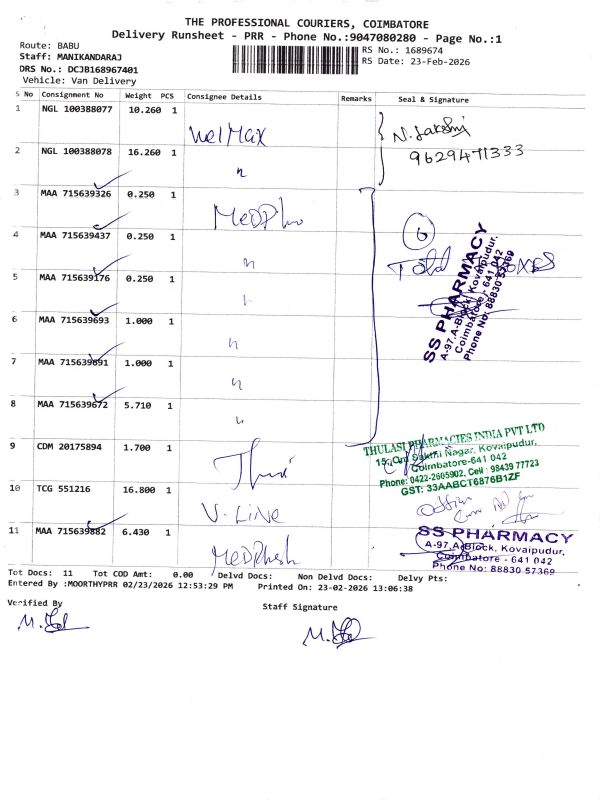 THE PROFESSIONAL COURIERS, COIMBATORE
Delivery Runsheet - PRR - Phone No.:9047080280 - Page No.:1
Route: BABU
Staff: MANIKANDARAJ
DRS No.: DCJB168967401
Vehicle: Van Delivery
RS No.: 1689674
RS Date: 23-Feb-2026
S No Consignment No Weight PCS Consignee Details Remarks Seal & Signature
1 NGL 100388077 10.260 1 WelMax
N. Lakshmi
9629471333
2 NGL 100388078 16.260 1 "
3 MAA 715639326 0.250 1 MeDPlus
4 MAA 715639437 0.250 1 "
6
Total Boxes
5 MAA 715639176 0.250 1 "
SS PHARMACY
A-97,A-Block, Kovaipudur,
Coimbatore - 641 042
Phone No: 88830 57369
6 MAA 715639693 1.000 1 "
7 MAA 715639691 1.000 1 "
8 MAA 715639672 5.710 1 "
9 CDM 20175894 1.700 1
THULASI PHARMACIES INDIA PVT LTD
15, Om Sakthi Nagar, Kovaipudur,
Coimbatore-641 042
Phone: 0422-2605902, Cell : 98439 77723
GST: 33AABCT6876B1ZF
10 TCG 551216 16.800 1 V-Line
11 MAA 715639882 6.430 1 MeDPlush
SS PHARMACY
A-97,A-Block, Kovaipudur,
Coimbatore - 641 042
Phone No: 88830 57369
Tot Docs: 11 Tot COD Amt: 0.00 Delvd Docs: Non Delvd Docs: Delvy Pts:
Entered By :MOORTHYPRR 02/23/2026 12:53:29 PM Printed On: 23-02-2026 13:06:38
Verified By Staff Signature